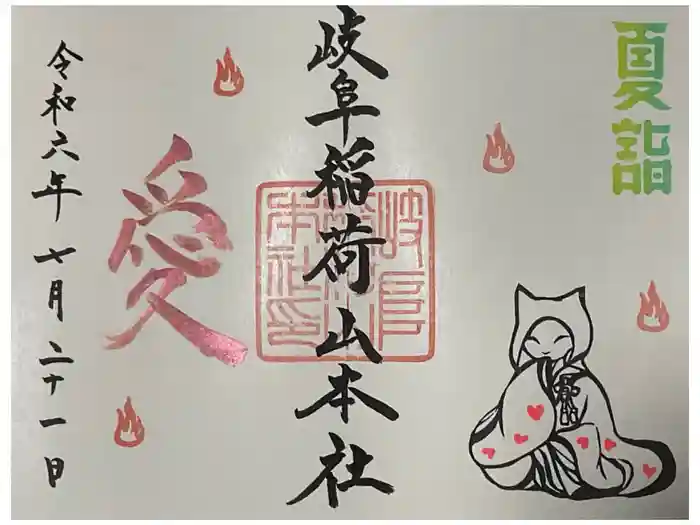 夏詣
岐阜稲荷山本社
岐阜稲荷山本社印
愛
令和六年七月二十一日